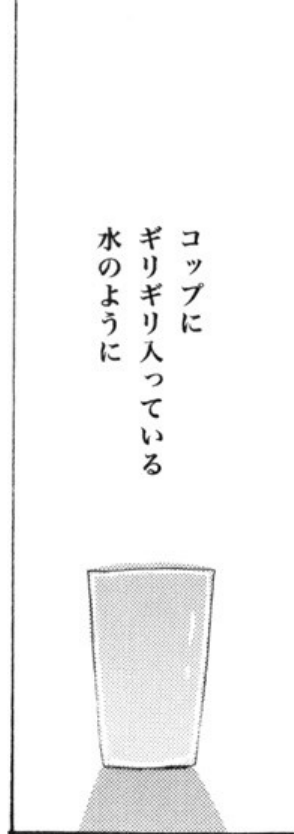 コップに
ギリギリ入っている
水のように